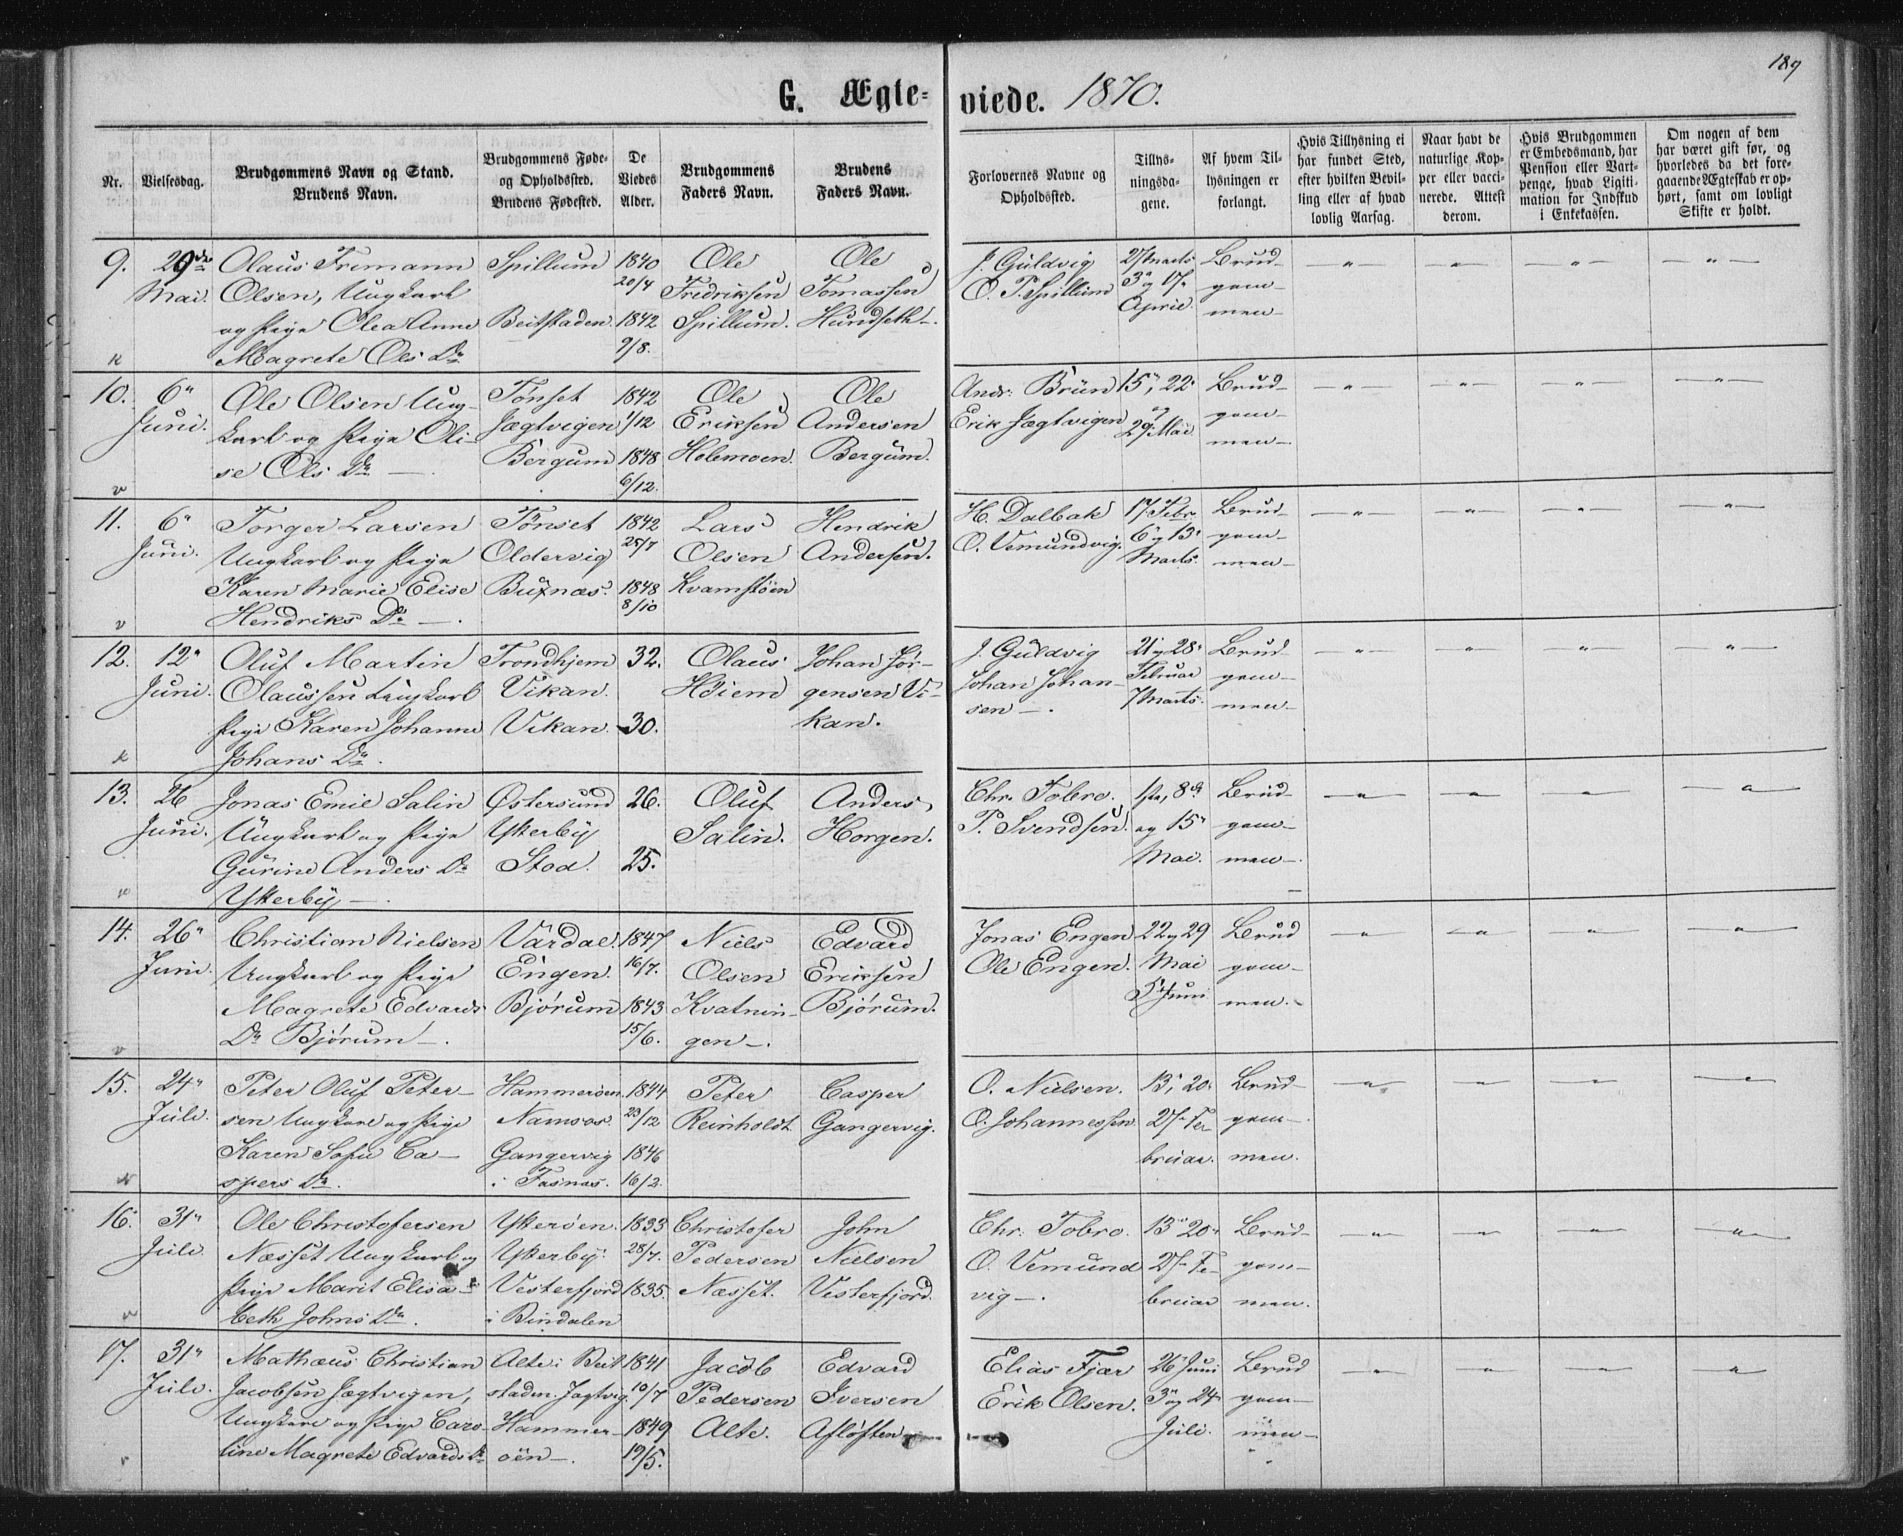 189
G. Ægte-viede. 1870.
Nr.
Vielsesdag.
Brudgommens Navn og Stand.
Brudens Navn.
Brudgommens Føde-
og Opholdssted.
Brudens Fødested.
De
Viedes
Alder.
Brudgommens
Faders Navn.
Brudens
Faders Navn.
Forlovernes Navne og
Opholdssted.
Tillys-
ningsda-
gene.
Af hvem Til-
lysningen er
forlangt.
Hvis Tillysning ei
har fundet Sted,
efter hvilken Bevil-
ling eller af hvad
lovlig Aarsag.
Naar havt de
naturlige Kop-
per eller vacci-
nerede. Attest
derom.
Hvis Brudgommen
er Embedsmand, har
Pension eller Vart-
penge, hvad Ligiti-
mation for Indskud
i Enkekassen.
Om nogen af dem
har været gift før, og
hvorledes da det fore-
gaaende Ægteskab er op-
hørt, samt om lovligt
Skifte er holdt.
9.
29de
Mai.
Olaus Fremann
Olsen, Ungkarl
og Pige Olea Anne
Magrete Ols Dr
Spillum
Beitstaden.
1840
20/4
1842
9/8.
Ole
Fredriksen
Spillum.
Ole
Tomassen
Hundseth-.
J. Guldvig
O. P. Spillum
27 Marts
3" og 17"
April.
Brud-
gom-
men-
10.
6"
Juni.
Ole Olsen Ung-
karl og Pige Oli-
se Ols Dr -.
Tønset
Jægtvigen
Bergum
1842
1/12
1848
6/12.
Ole
Eriksen
Holemoen.
Ole
Andersen
Bergum.
Andr. Brün
Erik Jægtvigen
15", 22"
og
29" Mai
Brud-
gom-
men-
11.
6"
Juni.
Torger Larsen
Ungkarl og Pige
Karen Marie Elise
Hendriks Dr -.
Tønset
Oldervig
Buxnæs.
1842
25/7
1848
8/10
Lars
Olsen
Kvamstøen
Hendrik
Andersen.
H. Dalbak
O. Vemundvig.
17 Febr.
6" og 13"
Marts.
Brud-
gom-
men-
12.
12"
Juni.
Oluf Martin
Olaussen Ungkarl
Pige Karen Johanne
Johans Dr.
Trondhjem
Vikan.
Vikan.
32.
30.
Olaus
Høiem
Johan Jør-
gensen Vi-
kan.
J. Guldvig
Johan Johan-
sen-.
21 og 28"
Februar
7 Marts.
Brud-
gom-
men-
13.
26
Juni.
Jonas Emil Salin
Ungkarl og Pige
Gurine Anders Dr
Ytterby-.
Østersund
Ytterby
Stod.
26.
25.
Oluf
Salin.
Anders
Horgen.
Chr. Tobro.
P. Svendsen.
1ste, 8de
og 15"
Mai.
Brud-
gom-
men-.
14.
26"
Juni.
Christian Nielsen
Ungkarl og Pige
Magrete Edvards
Dr Bjørum-.
Værdal.
Engen.
Bjørum
1847
16/7.
1843
15/6.
Niels
Olsen
Kvatnin-
gen-.
Edvard
Eriksen
Bjørum.
Jonas Engen
Ole Engen.
22 og 29
Mai
5" Juni
Brud
gom-
men.-
15.
24"
Juli.
Peter Oluf Peter-
sen Ungkarl og Pige
Karen Sofie Ca-
spers Dr.
Hammerøen.
Namsos.
Gangervig
i Fosnæs.
1844
23/12
1846
16/2.
Peter
Reinholdt
Casper
Gangervig.
O. Nielsen.
O. Johannessen
13", 20"
27" Fe
bruar.
Brud-
gom-.
men.
16.
31"
Juli.
Ole Christofersen
Næsset Ungkarl og
Pige Marit Elisa-
beth Johns Dr.
Ytterøen.
Ytterby.
Vesterfjord
i Bindalen
1833
28/7.
1835.
Christofer
Pedersen
Næsset.
John
Nielsen
Vesterfjord.
Chr. Tobro.
O. Vemund
vig-.
13" 20"
27" Fe-
bruar
Brud-
gom-
men.
17.
31"
Juli.
Mathæus Christian
Jacobsen Jægtvigen,
Ungkarl og Pige Caro-
line Magrete Edvards Dr
Alte i Beit
staden. Jægtvig.
Hammer-
øen-.
1841
10/7
1849
19/5.
Jacob
Pedersen
Alte.
Edvard
Iversen
Afløften
Elias Fjær
Erik Olsen.
26" Juni
3" og 24
Juli.
Brud
gom-
men-